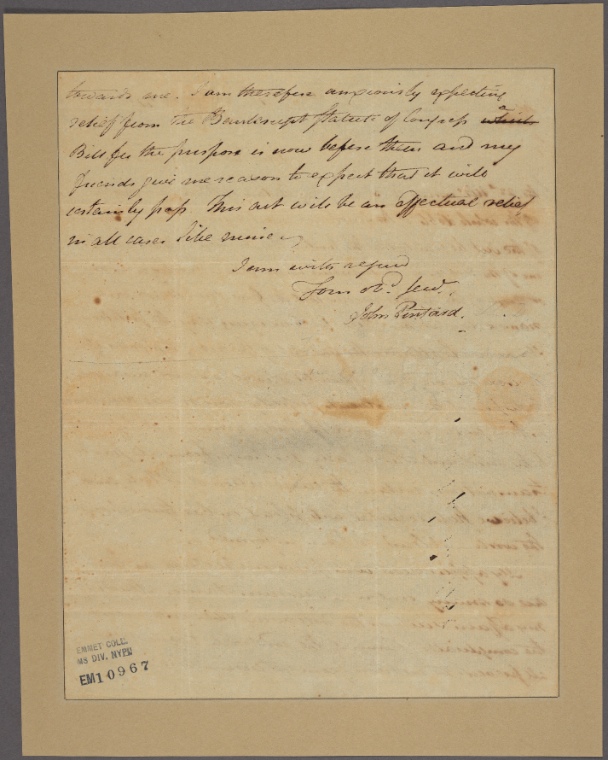 towards me. I am therefore anxiously expecting
relief from the Bankrupt Statute of Congress
Bill for the purpose is now before them and my
friends give me reason to expect that it will
certainly pass. This act will be an effectual relief
in all cases like mine
I am with regard
Your obt. servt.
John Pintard.
EMMET COLL.
MS DIV. NYPL
EM10967